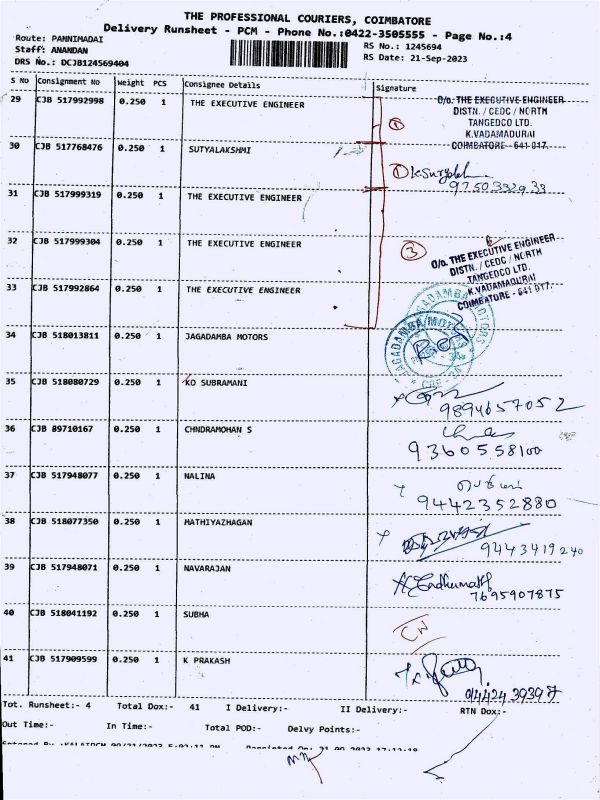 THE PROFESSIONAL COURIERS, COIMBATORE
Delivery Runsheet - PCM - Phone No.:0422-3505555 - Page No.:4
Route: PANNIMADAI
RS No.: 1245694
Staff: ANANDAN
DRS No.: DCJB124569404
RS Date: 21-Sep-2023
S No Consignment No Weight PCS Consignee Details Signature
29 CJB 517992998 0.250 1 THE EXECUTIVE ENGINEER
①
O/o. THE EXECUTIVE ENGINEER
DISTN. / CEDC / NORTH
TANGEDCO LTD.
K.VADAMADURAI
COIMBATORE - 641 017.
30 CJB 517768476 0.250 1 SUTYALAKSHMI
①
31 CJB 517999319 0.250 1 THE EXECUTIVE ENGINEER
32 CJB 517999304 0.250 1 THE EXECUTIVE ENGINEER
③
O/o. THE EXECUTIVE ENGINEER
DISTN. / CEDC / NORTH
TANGEDCO LTD.
K.VADAMADURAI
COIMBATORE - 641 017.
33 CJB 517992864 0.250 1 THE EXECUTIVE ENGINEER
34 CJB 518013811 0.250 1 JAGADAMBA MOTORS
JAGADAMBA MOTORS
35 CJB 518080729 0.250 1 KO SUBRAMANI
9894657052
36 CJB 89710167 0.250 1 CHNDRAMOHAN S
9360558100
37 CJB 517948077 0.250 1 NALINA
9442352880
38 CJB 518077350 0.250 1 MATHIYAZHAGAN
9443419240
39 CJB 517948071 0.250 1 NAVARAJAN
7695907875
40 CJB 518041192 0.250 1 SUBHA
41 CJB 517909599 0.250 1 K PRAKASH
Tot. Runsheet:- 4 Total Dox:- 41 I Delivery:- II Delivery:- RTN Dox:-
Out Time:- In Time:- Total POD:- Delvy Points:-